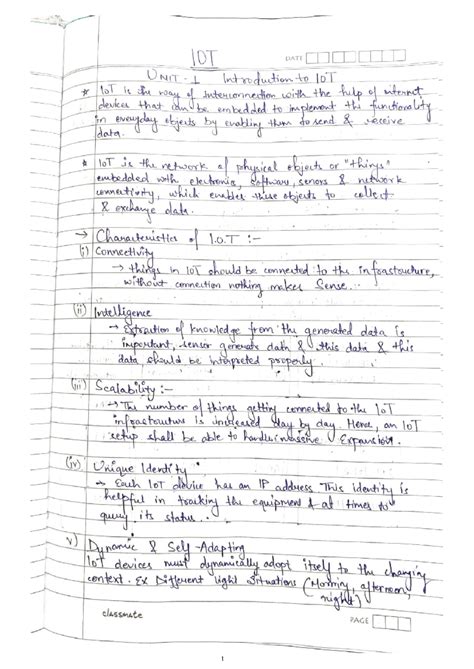 IOT
DATE
UNIT-1 Introduction to IOT
* IOT is the way of interconnection with the help of internet
devices that can be embedded to implement the functionality
in everyday objects by enabling them to send & receive
data.
* IOT is the network of physical objects or "things"
embedded with electronic, software, sensors & network
connectivity, which enables these objects to collect
& exchange data.
→ Characteristics of I.O.T :-
(i) Connectivity
→ things in IOT should be connected to the infrastructure,
without connection nothing makes Sense...
(ii) Intelligence
→ Extraction of knowledge from the generated data is
important, sensor generate data & this data & this
data should be interpreted properly.
(iii) Scalability :-
→ The number of things getting connected to the IOT
infrastructure is increased day by day. Hence, an IOT
setup shall be able to handle massive Expansion.
(iv) Unique Identity
→ Each IOT device has an IP address This identity is
helpful in tracking the equipment & at times to
query its status...
v) Dynamic & Self-Adapting
IOT devices must dynamically adopt itself to the changing
context. Ex Different light situations (Morning, afternoon,
night)
classmate
PAGE
1